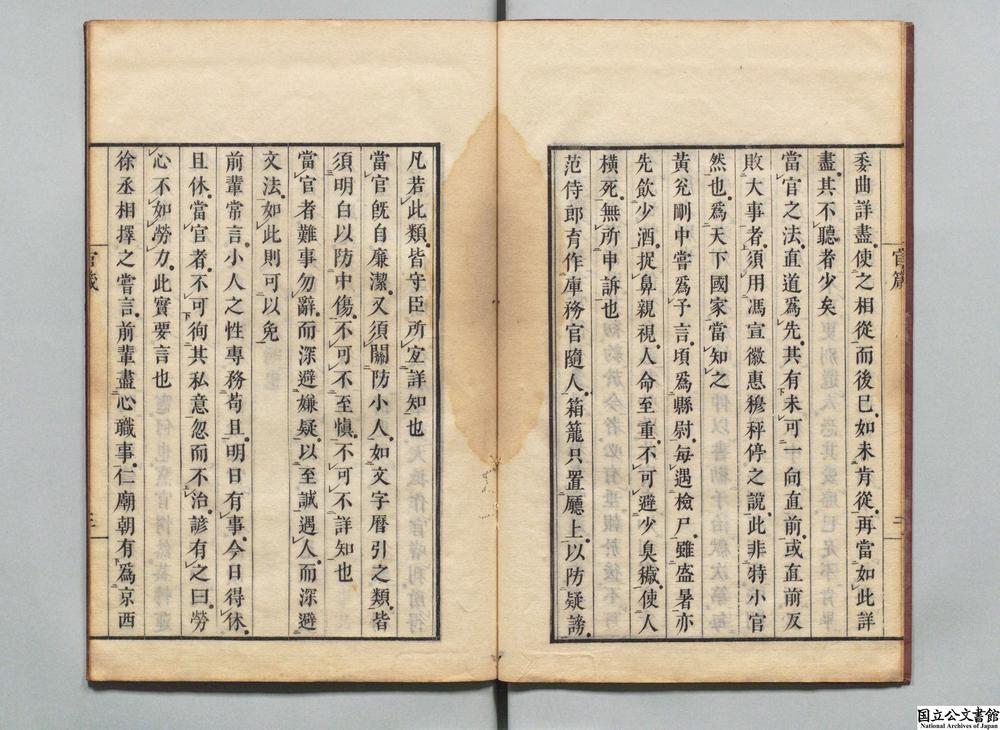 委曲詳盡使之相從而後已如未肯從再當如此詳
盡其不聽者少矣
當官之法直道爲先其有未可一向直前或直前反
敗大事者須用馮宣徽惠穆秤停之說此非特小官
然也爲天下國家當知之
黃兊剛中嘗爲予言頃爲縣尉每遇檢尸雖盛暑亦
先飲少酒捉鼻親視人命至重不可避少臭穢使人
橫死無所申訴也
范侍郎育作庫務官隨人箱籠只置廳上以防疑謗
凡若此類皆守臣所宐詳知也
當官旣自廉潔又須關防小人如文字曆引之類皆
須明白以防中傷不可不至愼不可不詳知也
當官者難事勿辭而深避嫌疑以至誠遇人而深避
文法如此則可以免
前輩常言小人之性專務苟且明日有事今日得休
且休當官者不可徇其私意忽而不治諺有之曰勞
心不如勞力此實要言也
徐丞相擇之嘗言前輩盡心職事仁廟朝有爲京西
官箴
二
官箴
三
国立公文書館
National Archives of Japan